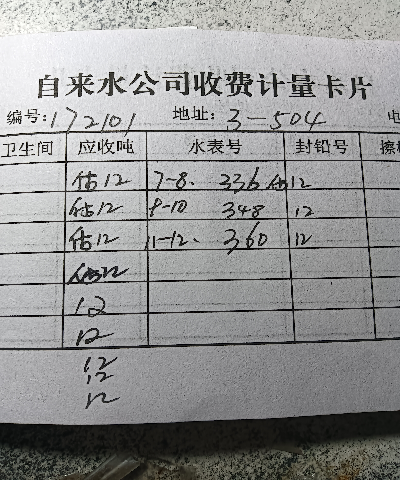 自来水公司收费计量卡片
编号:172101 地址:3-504 电
卫生间 应收吨 水表号 封铅号 擦
估12 7-8. 336 估12
估12 9-10 348 12
估12 11-12. 360 12
估12
12
12
12
12
12